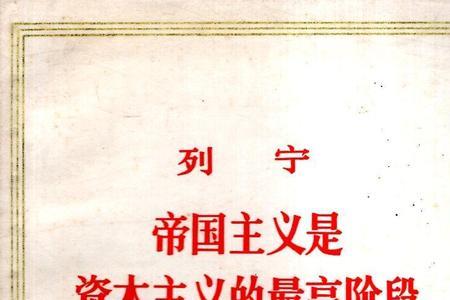 列宁
帝国主义是
資本主义的最高阶段